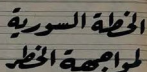 الخطة السورية
لمواجهة الخطر